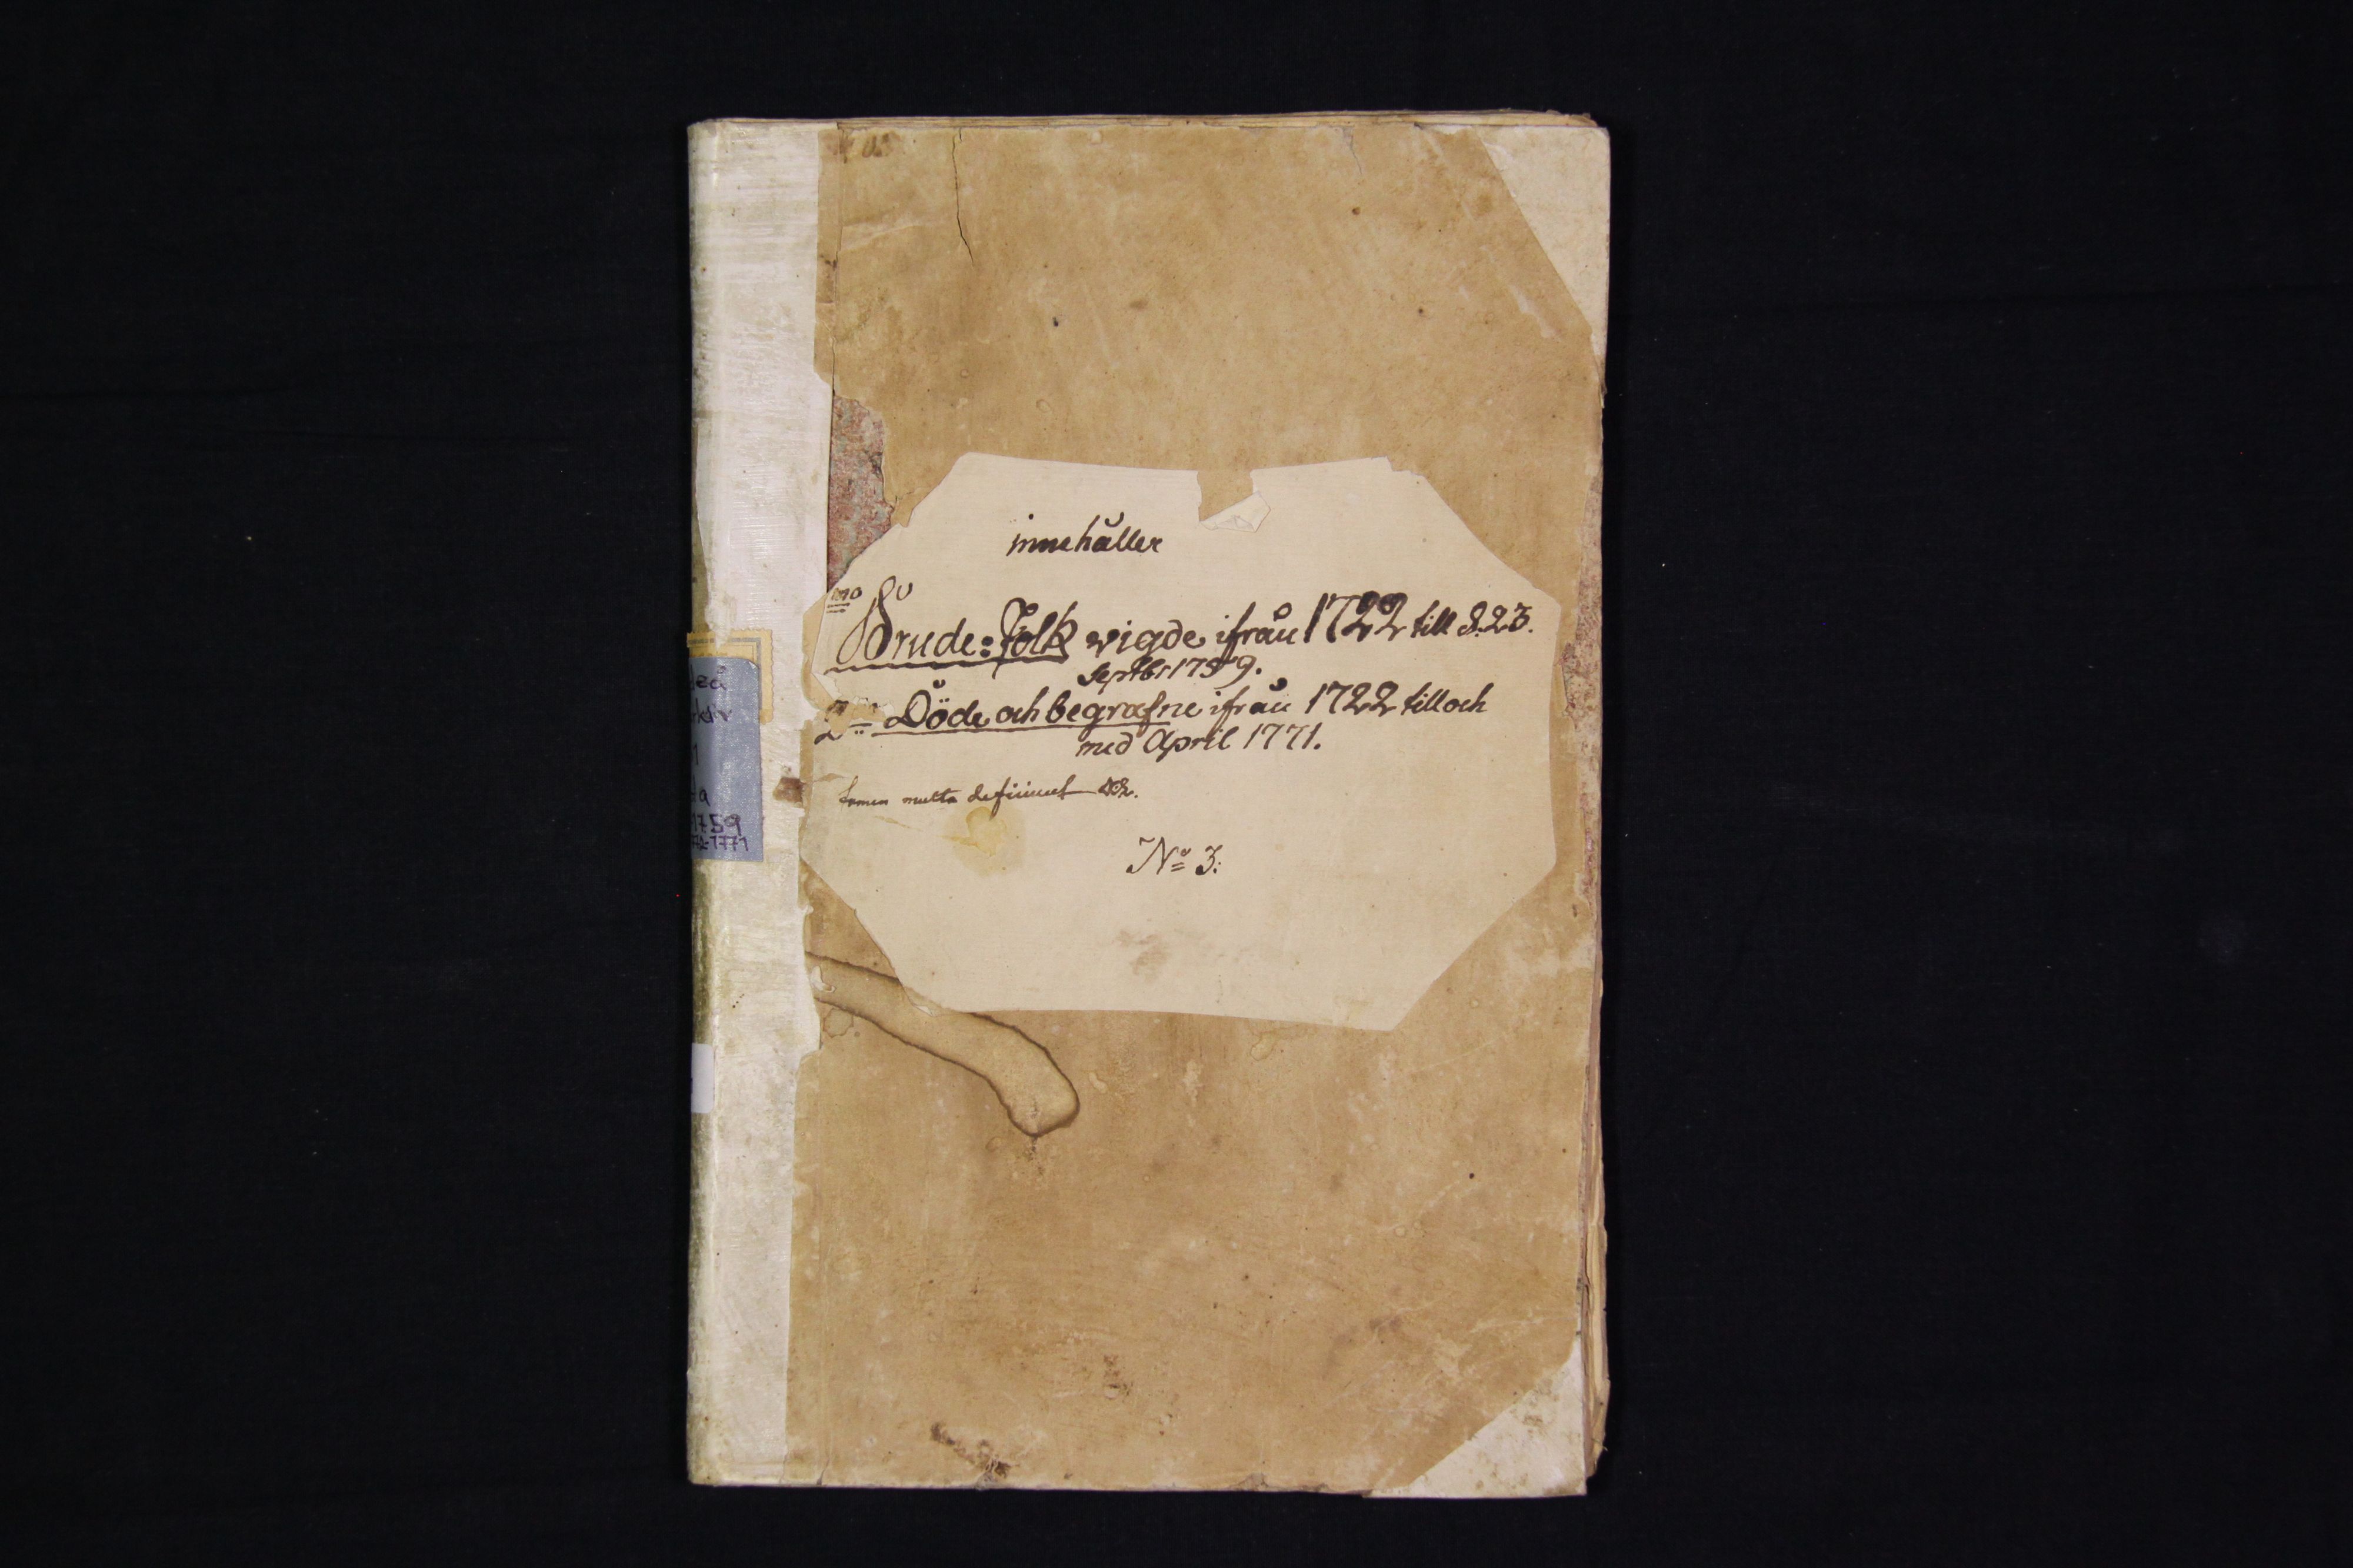 innehåller
mo Brude=Folk vigde ifrån 1722 till d. 23.
Septbr 1759.
2do Döde och begrafne ifrån 1722 till och
med April 1771.
tamen multa deficiunt
No 3.
1
1759
72-1771